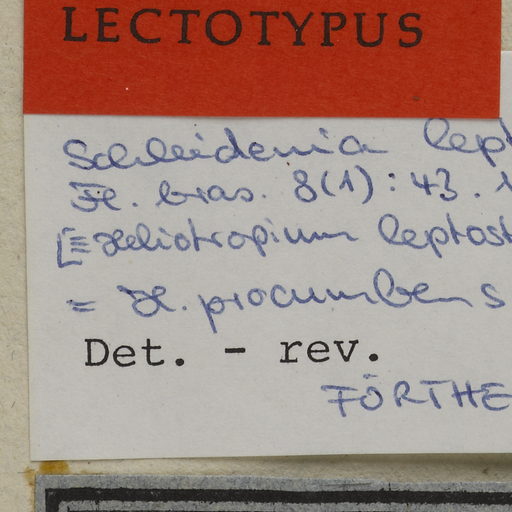 LECTOTYPUS
Schleidenia lept
Fl. bras. 8(1): 43. 1
[≡ Heliotropium leptost
= H. procumbens
Det. - rev.
FÖRTHE